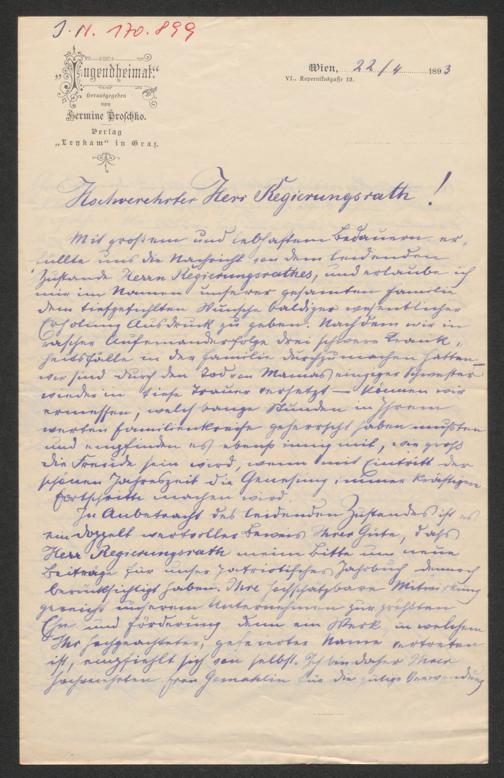 J. N. 170.899
„Jugendheimat."
Herausgegeben
von
Hermine Proschko.
Verlag
„Leykam" in Graz.
Wien, 22/4 1893
VI., Kopernikusgasse 12.
Hochverehrter Herr Regierungsrath!
Mit großem und lebhaftem Bedauern er-
füllte uns die Nachricht von dem leidenden
Zustande Herrn Regierungsrathes, und erlaube ich
mir im Namen unserer gesamten Familie
dem tiefgefühlten Wunsche baldiger wesentlicher
Erholung Ausdruck zu geben. Nachdem wir in
rascher Aufeinanderfolge drei schwere Krank-
heitsfälle in der Familie durchzumachen hatten –
wir sind durch den Tod von Mamas einziger Schwester
wieder in tiefe Trauer versetzt – können wir
ermessen, welch bange Stunden in Ihrem
werten Familienkreise geherrscht haben mußten
und empfinden es ebenso innig mit, wie groß
die Freude sein wird, wenn mit Eintritt der
schönen Jahreszeit die Genesung immer kräftigere
Fortschritte machen wird.
In Anbetracht des leidenden Zustandes ist es
ein doppelt wertvoller Beweis Ihrer Güte, daß
Herr Regierungsrath meine Bitte um neue
Beiträge für unser patriotisches Jahrbuch dennoch
berücksichtigt haben. Ihre hochschätzbare Mitwirkung
gereicht unserem Unternehmen zur größten
Ehre und Förderung, denn ein Werk, in welchem
Ihr hochgeachteter, gefeierter Name vertreten
ist, empfiehlt sich von selbst. Ich bin daher Ihrer
hochverehrten Frau Gemahlin für die gütige Verwendung